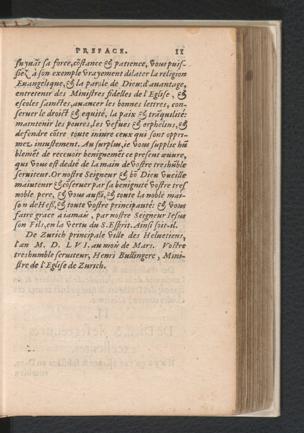 PREFACE. 11
suyuãt sa force, cõstance & patience, vous puis-
siez à son exemple vrayement dilater la religion
Euangelique, & la parole de Dieu: d'auantage,
entretenir des Ministres fidelles de l'Eglise, &
escoles sainctes, auancer les bonnes lettres, con-
seruer le droict & equité, la paix & träquilité:
maintenir les poures, les vefues & orphelins, &
defendre côtre toute iniure ceux qui sont oppri-
mez iniustement. Au surplus, ie vous supplie hũ-
blemẽt de receuoir benignemẽt ce present œuure,
qui vous est dedié de la main de vostre treshũble
seruiteur. Or nostre Seigneur & bõ Dieu vueille
maintenir & cõseruer par sa benignité vostre tres
noble pere, & vous aussi, & toute la noble mai-
son de Heß, & toute vostre principauté: & vous
faire grace a iamais, par nostre Seigneur Iesus
son Fils, en la vertu du S. Esprit. Ainsi soit-il.
De Zurich principale ville des Helvetiens,
l'an M. D. LVI. au mois de Mars. Vostre
treshumble seruiteur, Henri Bullingere, Mini-
stre de l'Eglise de Zurich.